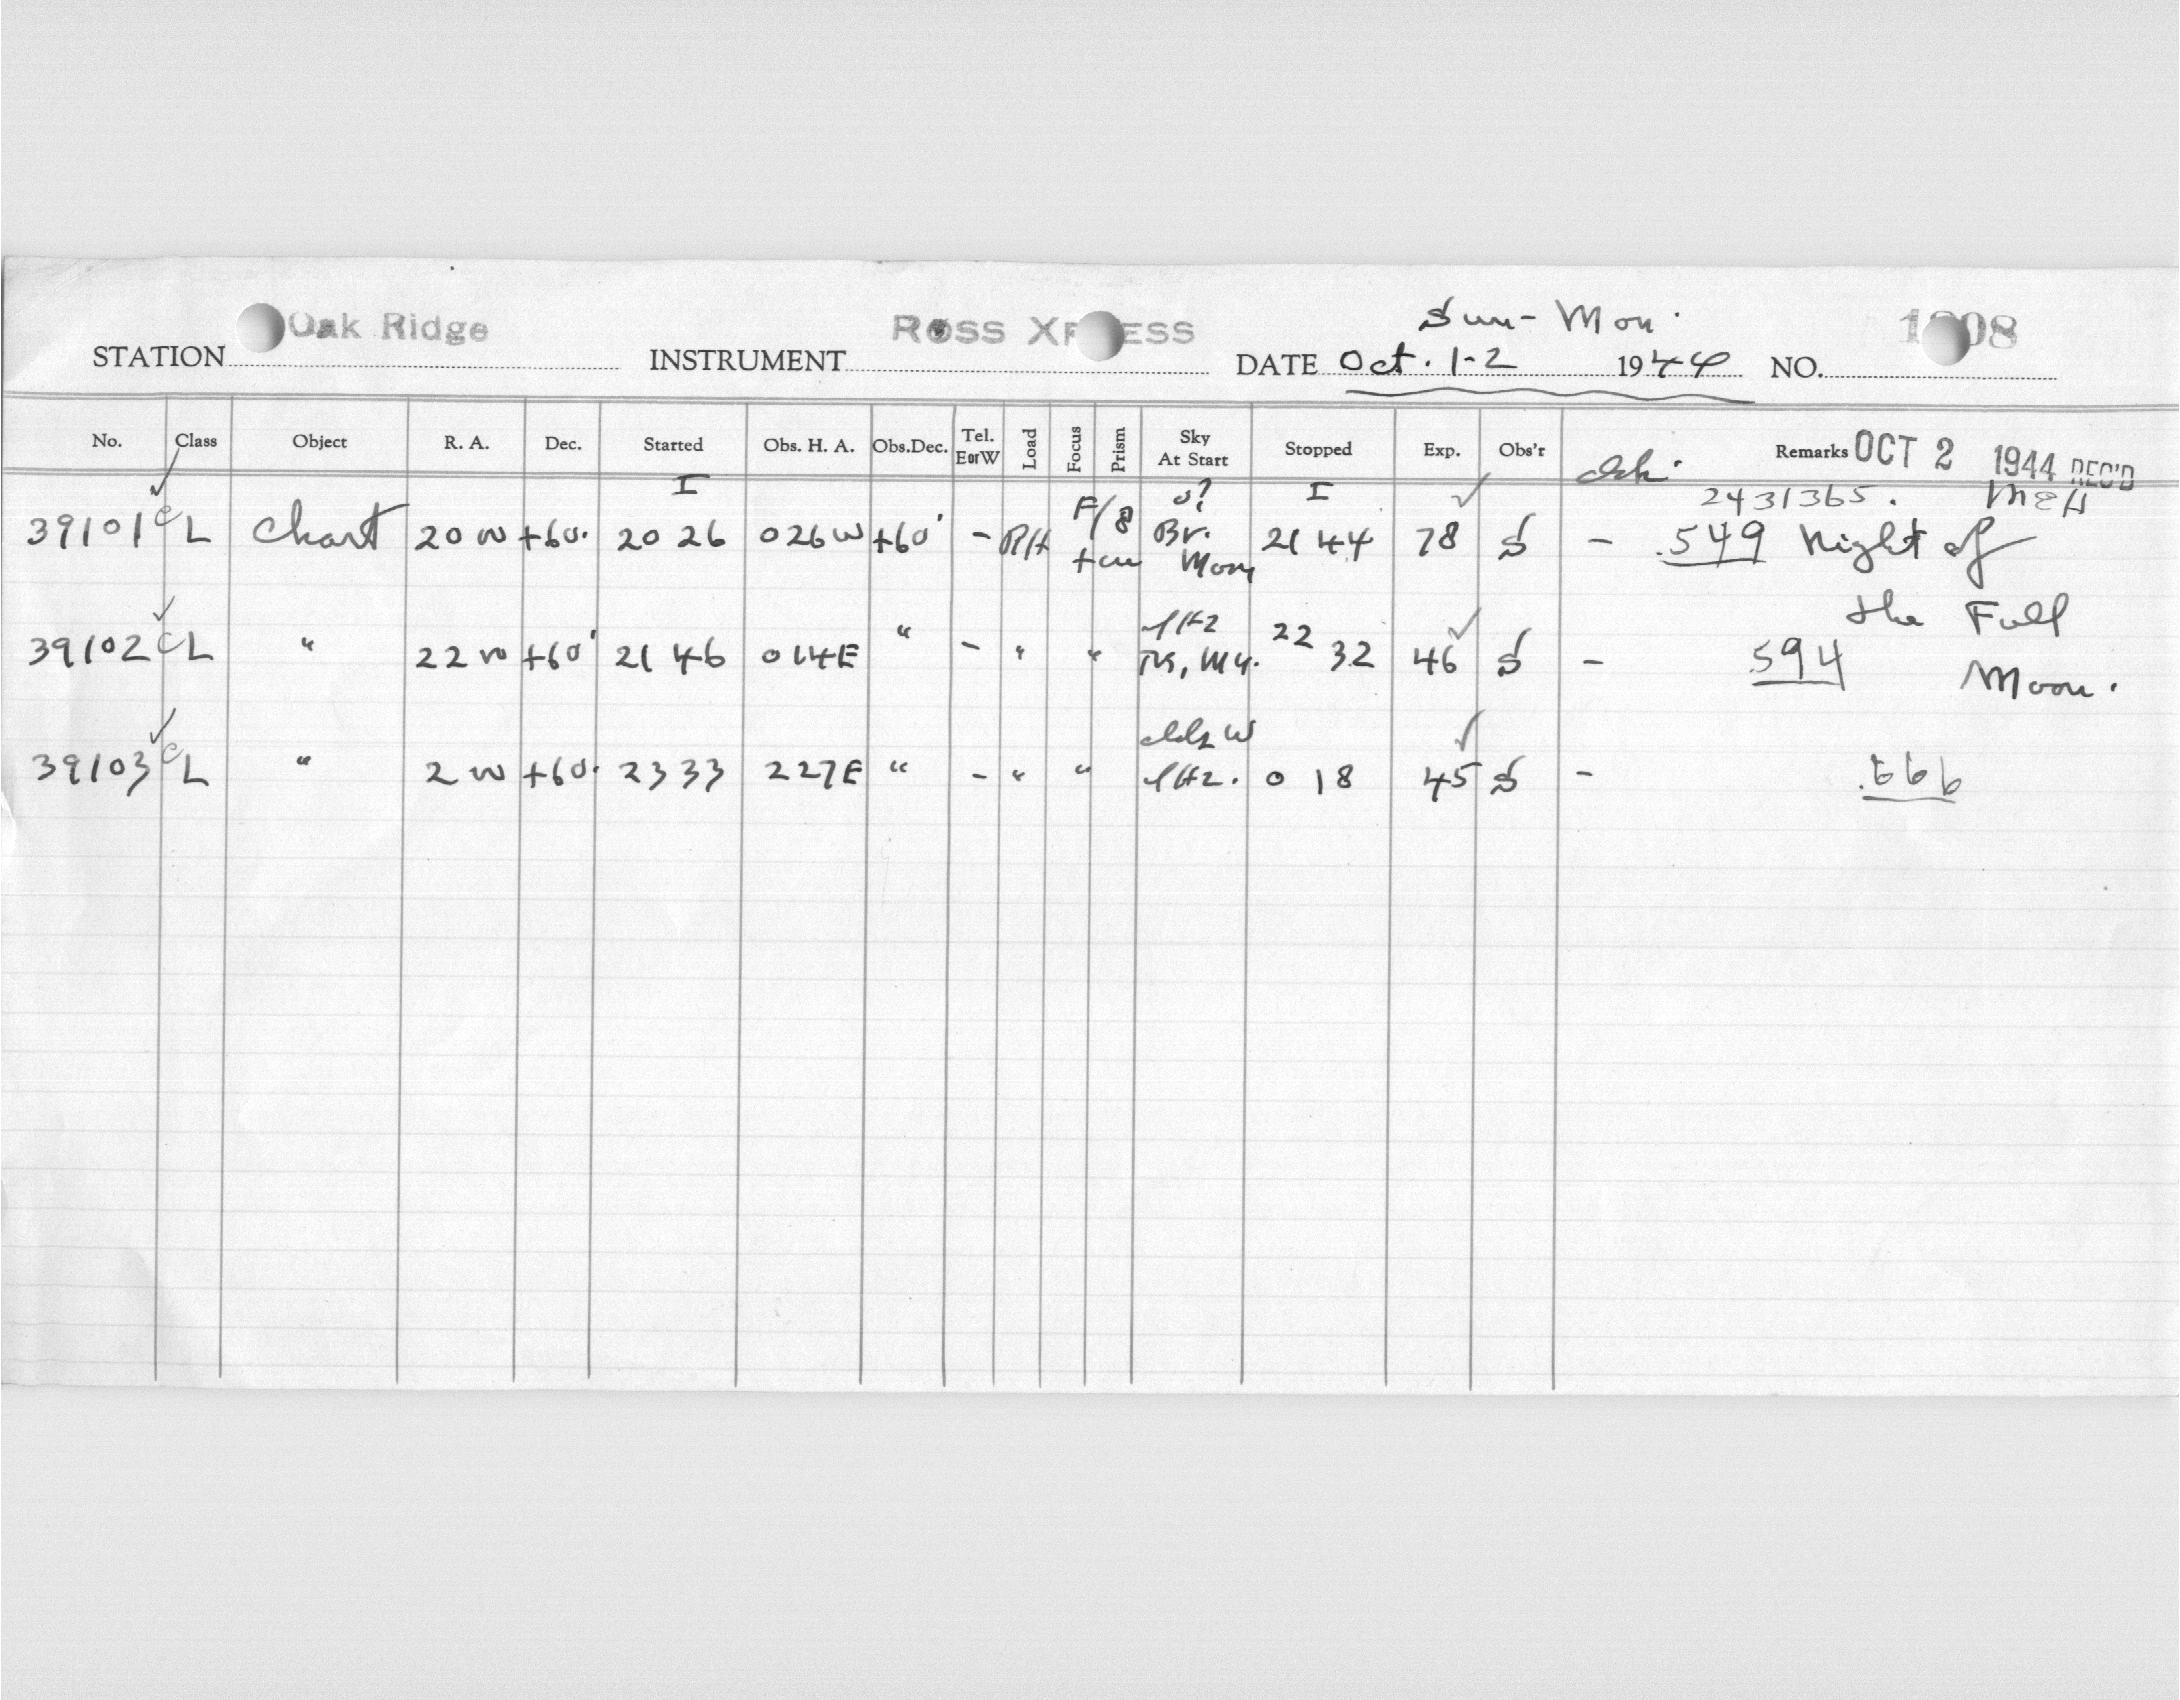 Oak Ridge ROSS XPRESS Sun-Mon. 1908
STATION INSTRUMENT DATE Oct. 1-2 1944 NO.
No. Class Object R. A. Dec. Started Obs. H. A. Obs.Dec. Tel. EorW Load Focus Prism Sky At Start Stopped Exp. Obs'r Remarks OCT 2 1944 REC'D
I I 2431365. MEH
39101 CL Chart 20 W +60° 20 26 026W +60° - F/8 Br. Moon 21 44 78 S - .549 Night of
the Full
39102 CL " 22 W +60° 21 46 014E " - " " 22 32 46 S - .594 Moon.
39103 CL " 2 W +60° 23 33 227E " - " " W 0 18 45 S - .666